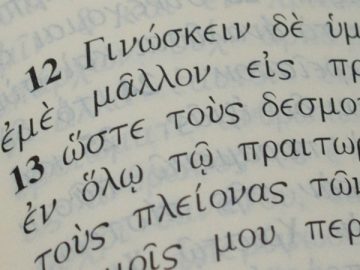 12 Γινώσκειν δὲ ὑμ
ἐμὲ μᾶλλον εἰς πρ
13 ὥστε τοὺς δεσμο
ἐν ὅλῳ τῷ πραιτωρ
τοὺς πλείονας τῶν
μου περ